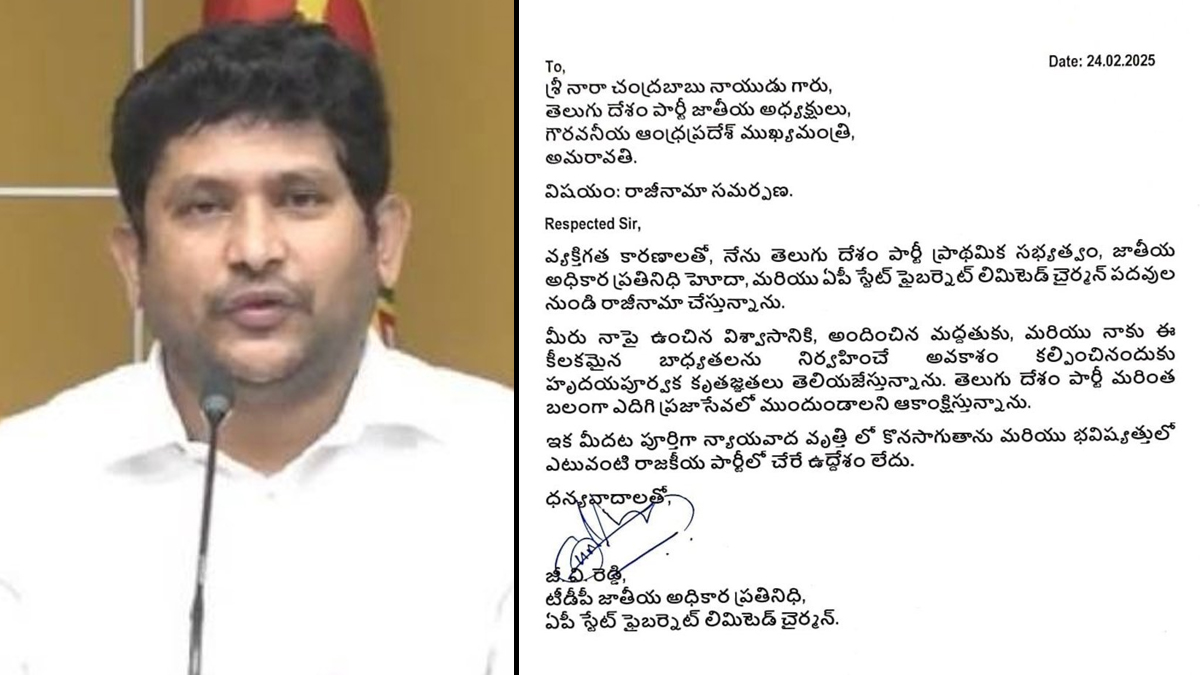 To,
Date: 24.02.2025
శ్రీ నారా చంద్రబాబు నాయుడు గారు,
తెలుగు దేశం పార్టీ జాతీయ అధ్యక్షులు,
గౌరవనీయ ఆంధ్రప్రదేశ్ ముఖ్యమంత్రి,
అమరావతి.
విషయం: రాజీనామా సమర్పణ.
Respected Sir,
వ్యక్తిగత కారణాలతో, నేను తెలుగు దేశం పార్టీ ప్రాథమిక సభ్యత్వం, జాతీయ
అధికార ప్రతినిధి హెూదా, మరియు ఏపీ స్టేట్ ఫైబర్నెట్ లిమిటెడ్ చైర్మన్ పదవుల
నుండి రాజీనామా చేస్తున్నాను.
మీరు నాపై ఉంచిన విశ్వాసానికి, అందించిన మద్దతుకు, మరియు నాకు ఈ
కీలకమైన బాధ్యతలను నిర్వహించే అవకాశం కల్పించినందుకు
హృదయపూర్వక కృతజ్ఞతలు తెలియజేస్తున్నాను. తెలుగు దేశం పార్టీ మరింత
బలంగా ఎదిగి ప్రజాసేవలో ముందుండాలని ఆకాంక్షిస్తున్నాను.
ఇక మీదట పూర్తిగా న్యాయవాద వృత్తి లో కొనసాగుతాను మరియు భవిష్యత్తులో
ఎటువంటి రాజకీయ పార్టీలో చేరే ఉద్దేశం లేదు.
ధన్యవాదాలతో,
జీ.వి. రెడ్డి,
టీడీపీ జాతీయ అధికార ప్రతినిధి,
ఏపీ స్టేట్ ఫైబర్నెట్ లిమిటెడ్ చైర్మన్.